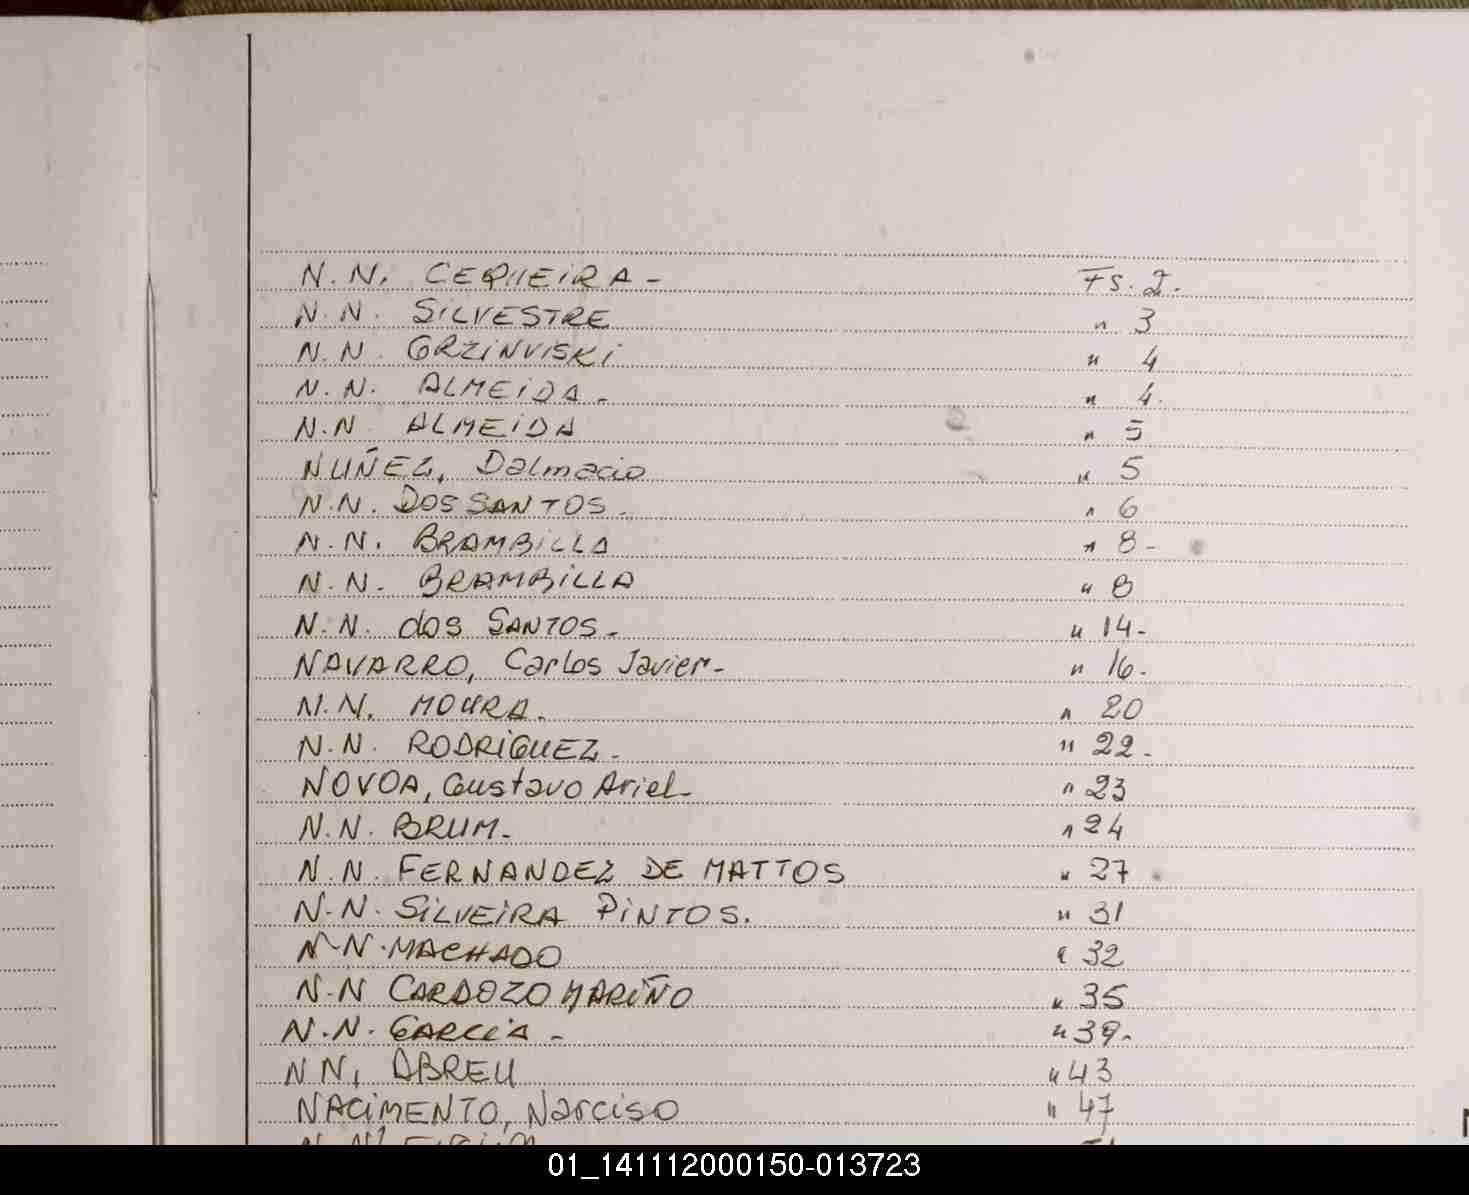 N.N. CEQUEIRA - Fs. 2.
N.N. SILVESTRE " 3
N.N. GRZINVISKI " 4
N.N. ALMEIDA. " 4.
N.N ALMEIDA " 5
NUÑEZ, Dalmacio " 5
N.N. DOS SANTOS. " 6
N.N. BRAMBILLA " 8-
N.N. BRAMBILLA " 8
N.N. dos SANTOS. " 14-
NAVARRO, Carlos Javier- " 16.
N.N. MOURA. " 20
N.N. RODRIGUEZ. " 22.
NOVOA, Gustavo Ariel " 23
N.N. BRUM. " 24
N.N. FERNANDEZ DE MATTOS " 27
N.N. SILVEIRA PINTOS. " 31
N-N. MACHADO " 32
N.N CARDOZO MARIÑO " 35
N.N. GARCIA - " 39.
NN, ABREU " 43
NACIMENTO, Narciso " 47
01_141112000150-013723